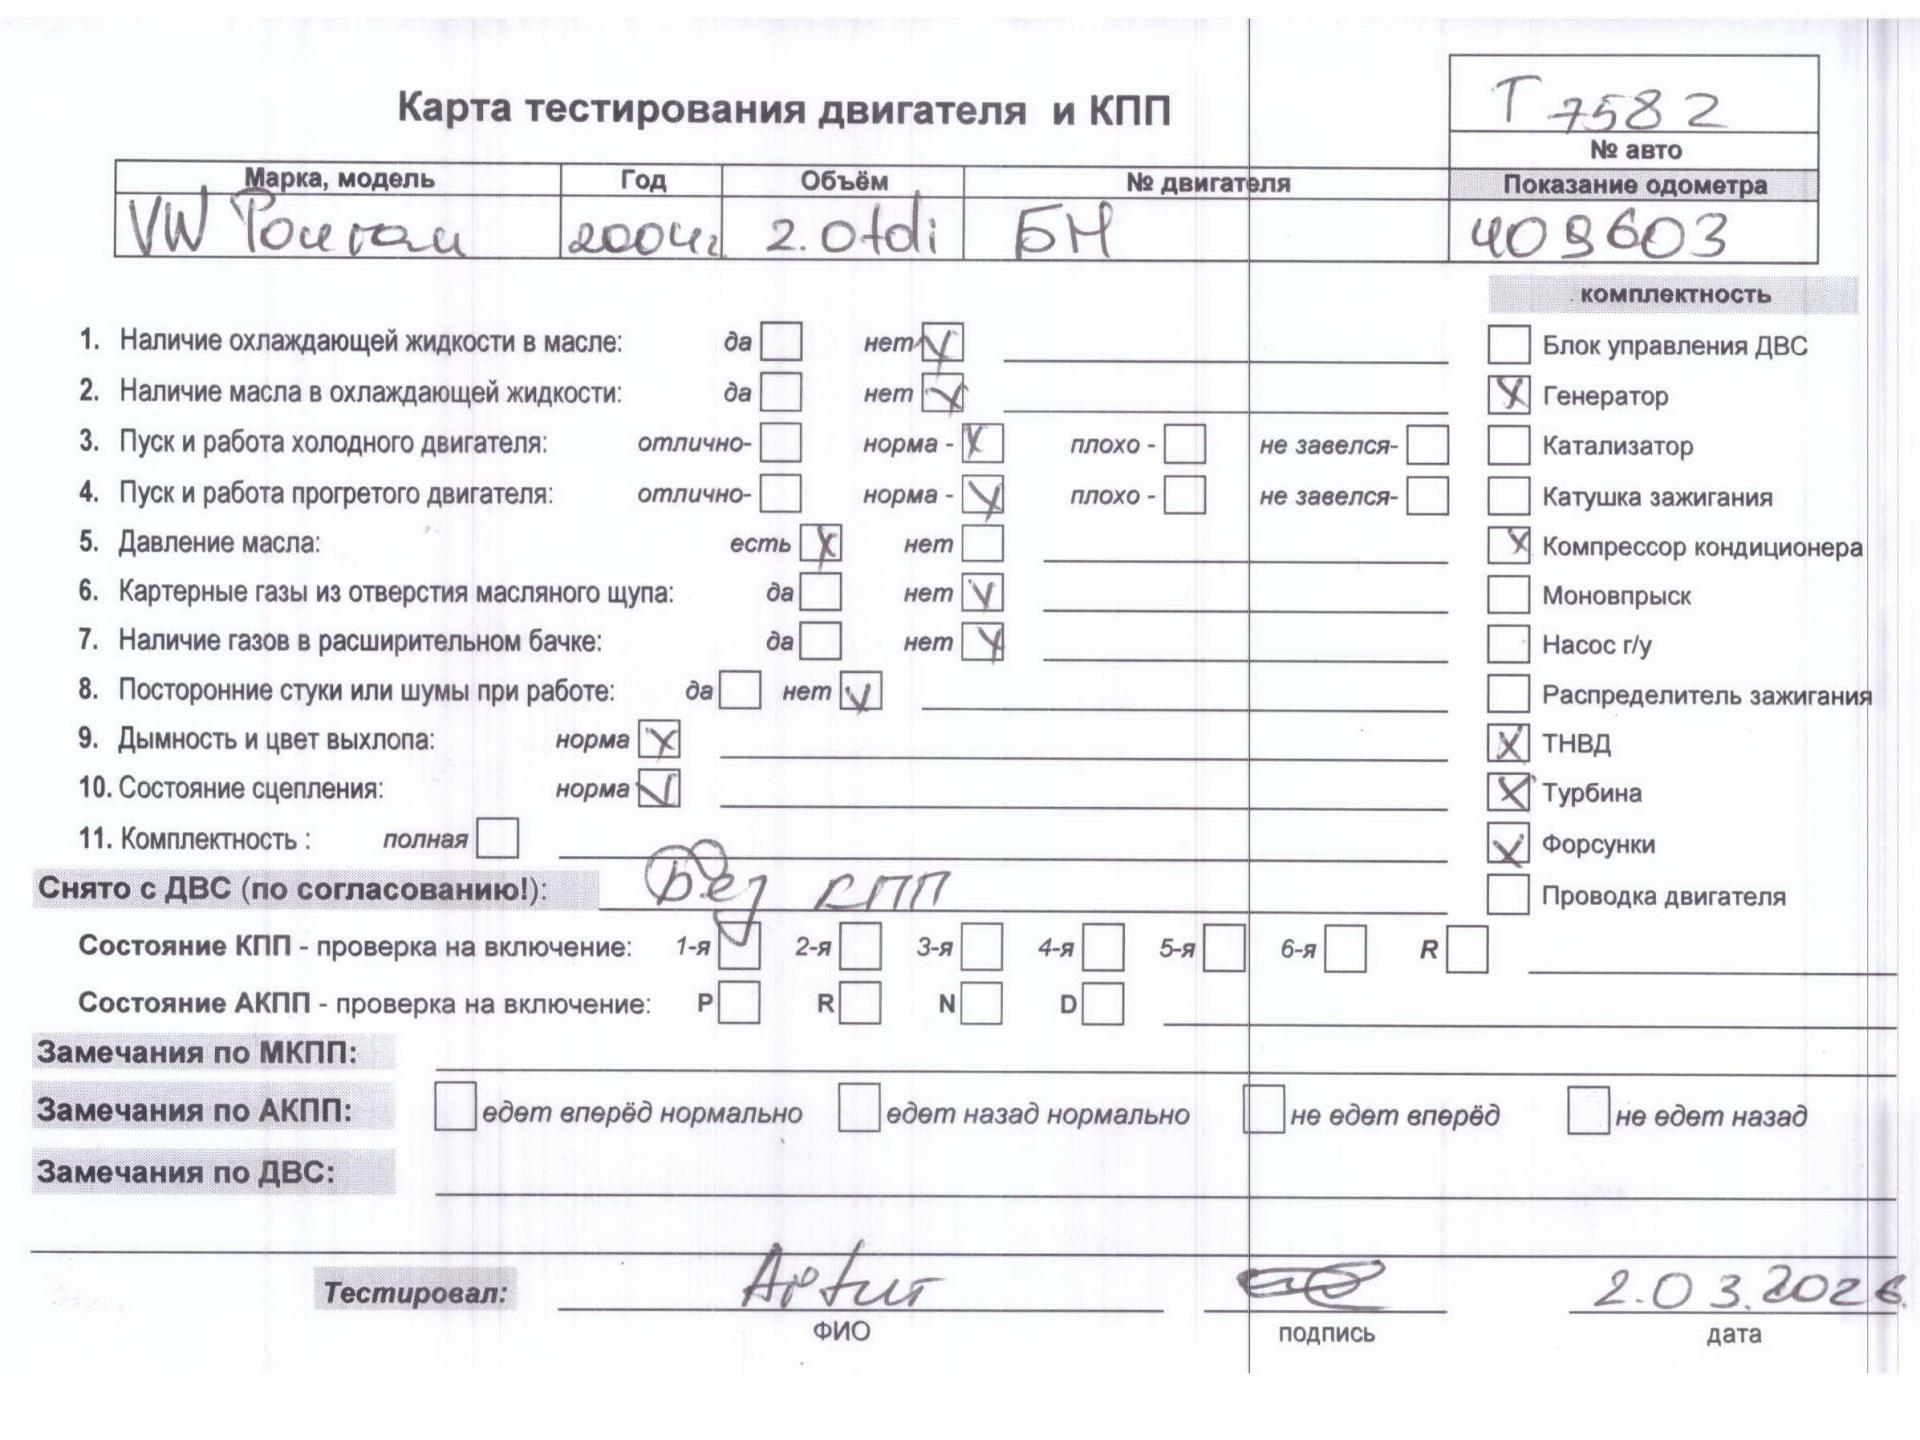 Т 7582
Карта тестирования двигателя и КПП
№ авто
Марка, модель Год Объём № двигателя Показание одометра
VW 2004г 2.0tdi БН 409603
комплектность
1. Наличие охлаждающей жидкости в масле: да нет Блок управления ДВС
2. Наличие масла в охлаждающей жидкости: да нет Генератор
3. Пуск и работа холодного двигателя: отлично- норма - плохо - не завелся- Катализатор
4. Пуск и работа прогретого двигателя: отлично- норма - плохо - не завелся- Катушка зажигания
5. Давление масла: есть нет Компрессор кондиционера
6. Картерные газы из отверстия масляного щупа: да нет Моновпрыск
7. Наличие газов в расширительном бачке: да нет Насос г/у
8. Посторонние стуки или шумы при работе: да нет Распределитель зажигания
9. Дымность и цвет выхлопа: норма ТНВД
10. Состояние сцепления: норма Турбина
11. Комплектность : полная Форсунки
Снято с ДВС (по согласованию!): Без КПП Проводка двигателя
Состояние КПП - проверка на включение: 1-я 2-я 3-я 4-я 5-я 6-я R
Состояние АКПП - проверка на включение: P R N D
Замечания по МКПП:
Замечания по АКПП: едет вперёд нормально едет назад нормально не едет вперёд не едет назад
Замечания по ДВС:
Тестировал: 2.03.2026.
ФИО подпись дата